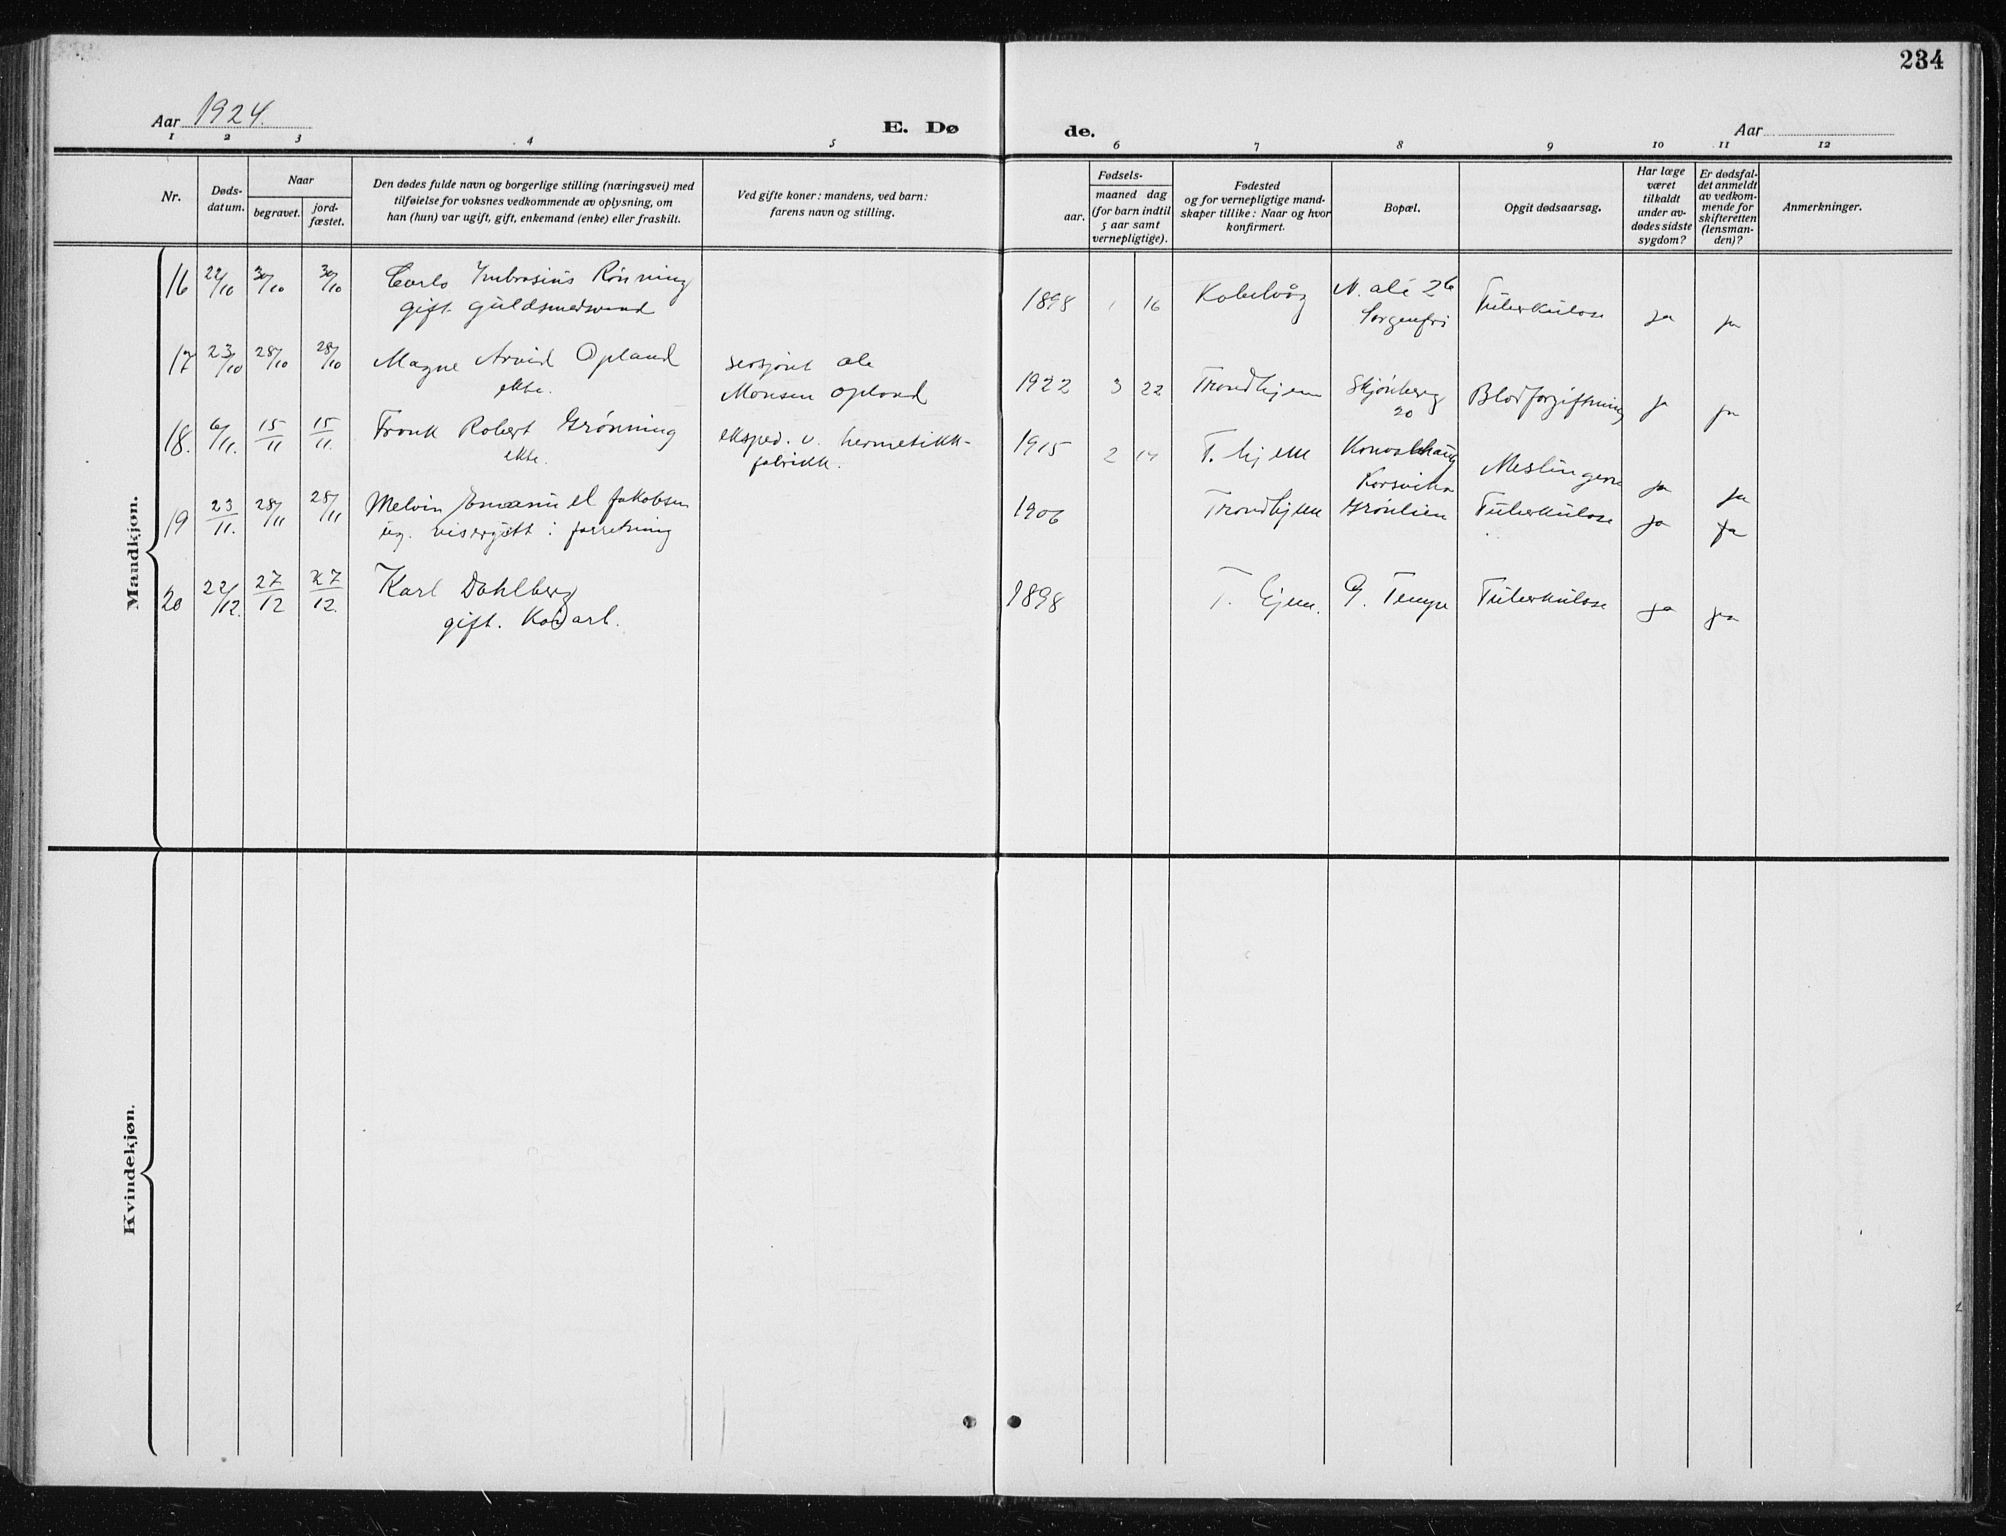 234
Aar 1924.
E. Døde.
Aar
1 2 3 4 5 6 7 8 9 10 11 12
Nr.
Døds-
datum.
Naar
begravet.
jord-
fæstet.
Den dødes fulde navn og borgerlige stilling (næringsvei) med
tilføielse for voksnes vedkommende av oplysning, om
han (hun) var ugift, gift, enkemand (enke) eller fraskilt.
Ved gifte koner: mandens, ved barn:
farens navn og stilling.
Fødsels-
aar.
maaned dag
(for barn indtil
5 aar samt
vernepligtige).
Fødested
og for vernepligtige mand-
skaper tillike: Naar og hvor
konfirmert.
Bopæl.
Opgit dødsaarsag.
Har læge
været
tilkaldt
under av-
dødes sidste
sygdom?
Er dødsfal-
det anmeldt
av vedkom-
mende for
skifteretten
(lensman-
den)?
Anmerkninger.
Mandkjøn.
16 22/10 30/10 30/10 Carlo Rønning 1898 1 16 N. alé 26 Tuberkulose ja ja
gift. guldsmedsvend Sorgenfri
17 23/10 28/10 28/10 Magne Arvid Opland Ole 1922 3 22 Trondhjem Skjønberg Blodforgiftning ja ja
ekte. Monsen Opland 20
18. 6/11. 15/11 15/11. Frank Robert Grønning eksped. v. hermetikk- 1915 2 14 T. hjem Meslingerne ja ja
ekte. fabrikk. Korsvika
19 23/11. 28/11 28/11 Melvin Emanuel Jakobsen 1906 Trondhjem Grønlien Tuberkulose ja ja
ug. visergutt i forretning
20 22/12. 27/12 27/12. Karl Dahlberg 1898 T. hjem. G. Tempe Tuberkulose ja ja
gift. arb.
Kvindekjøn.